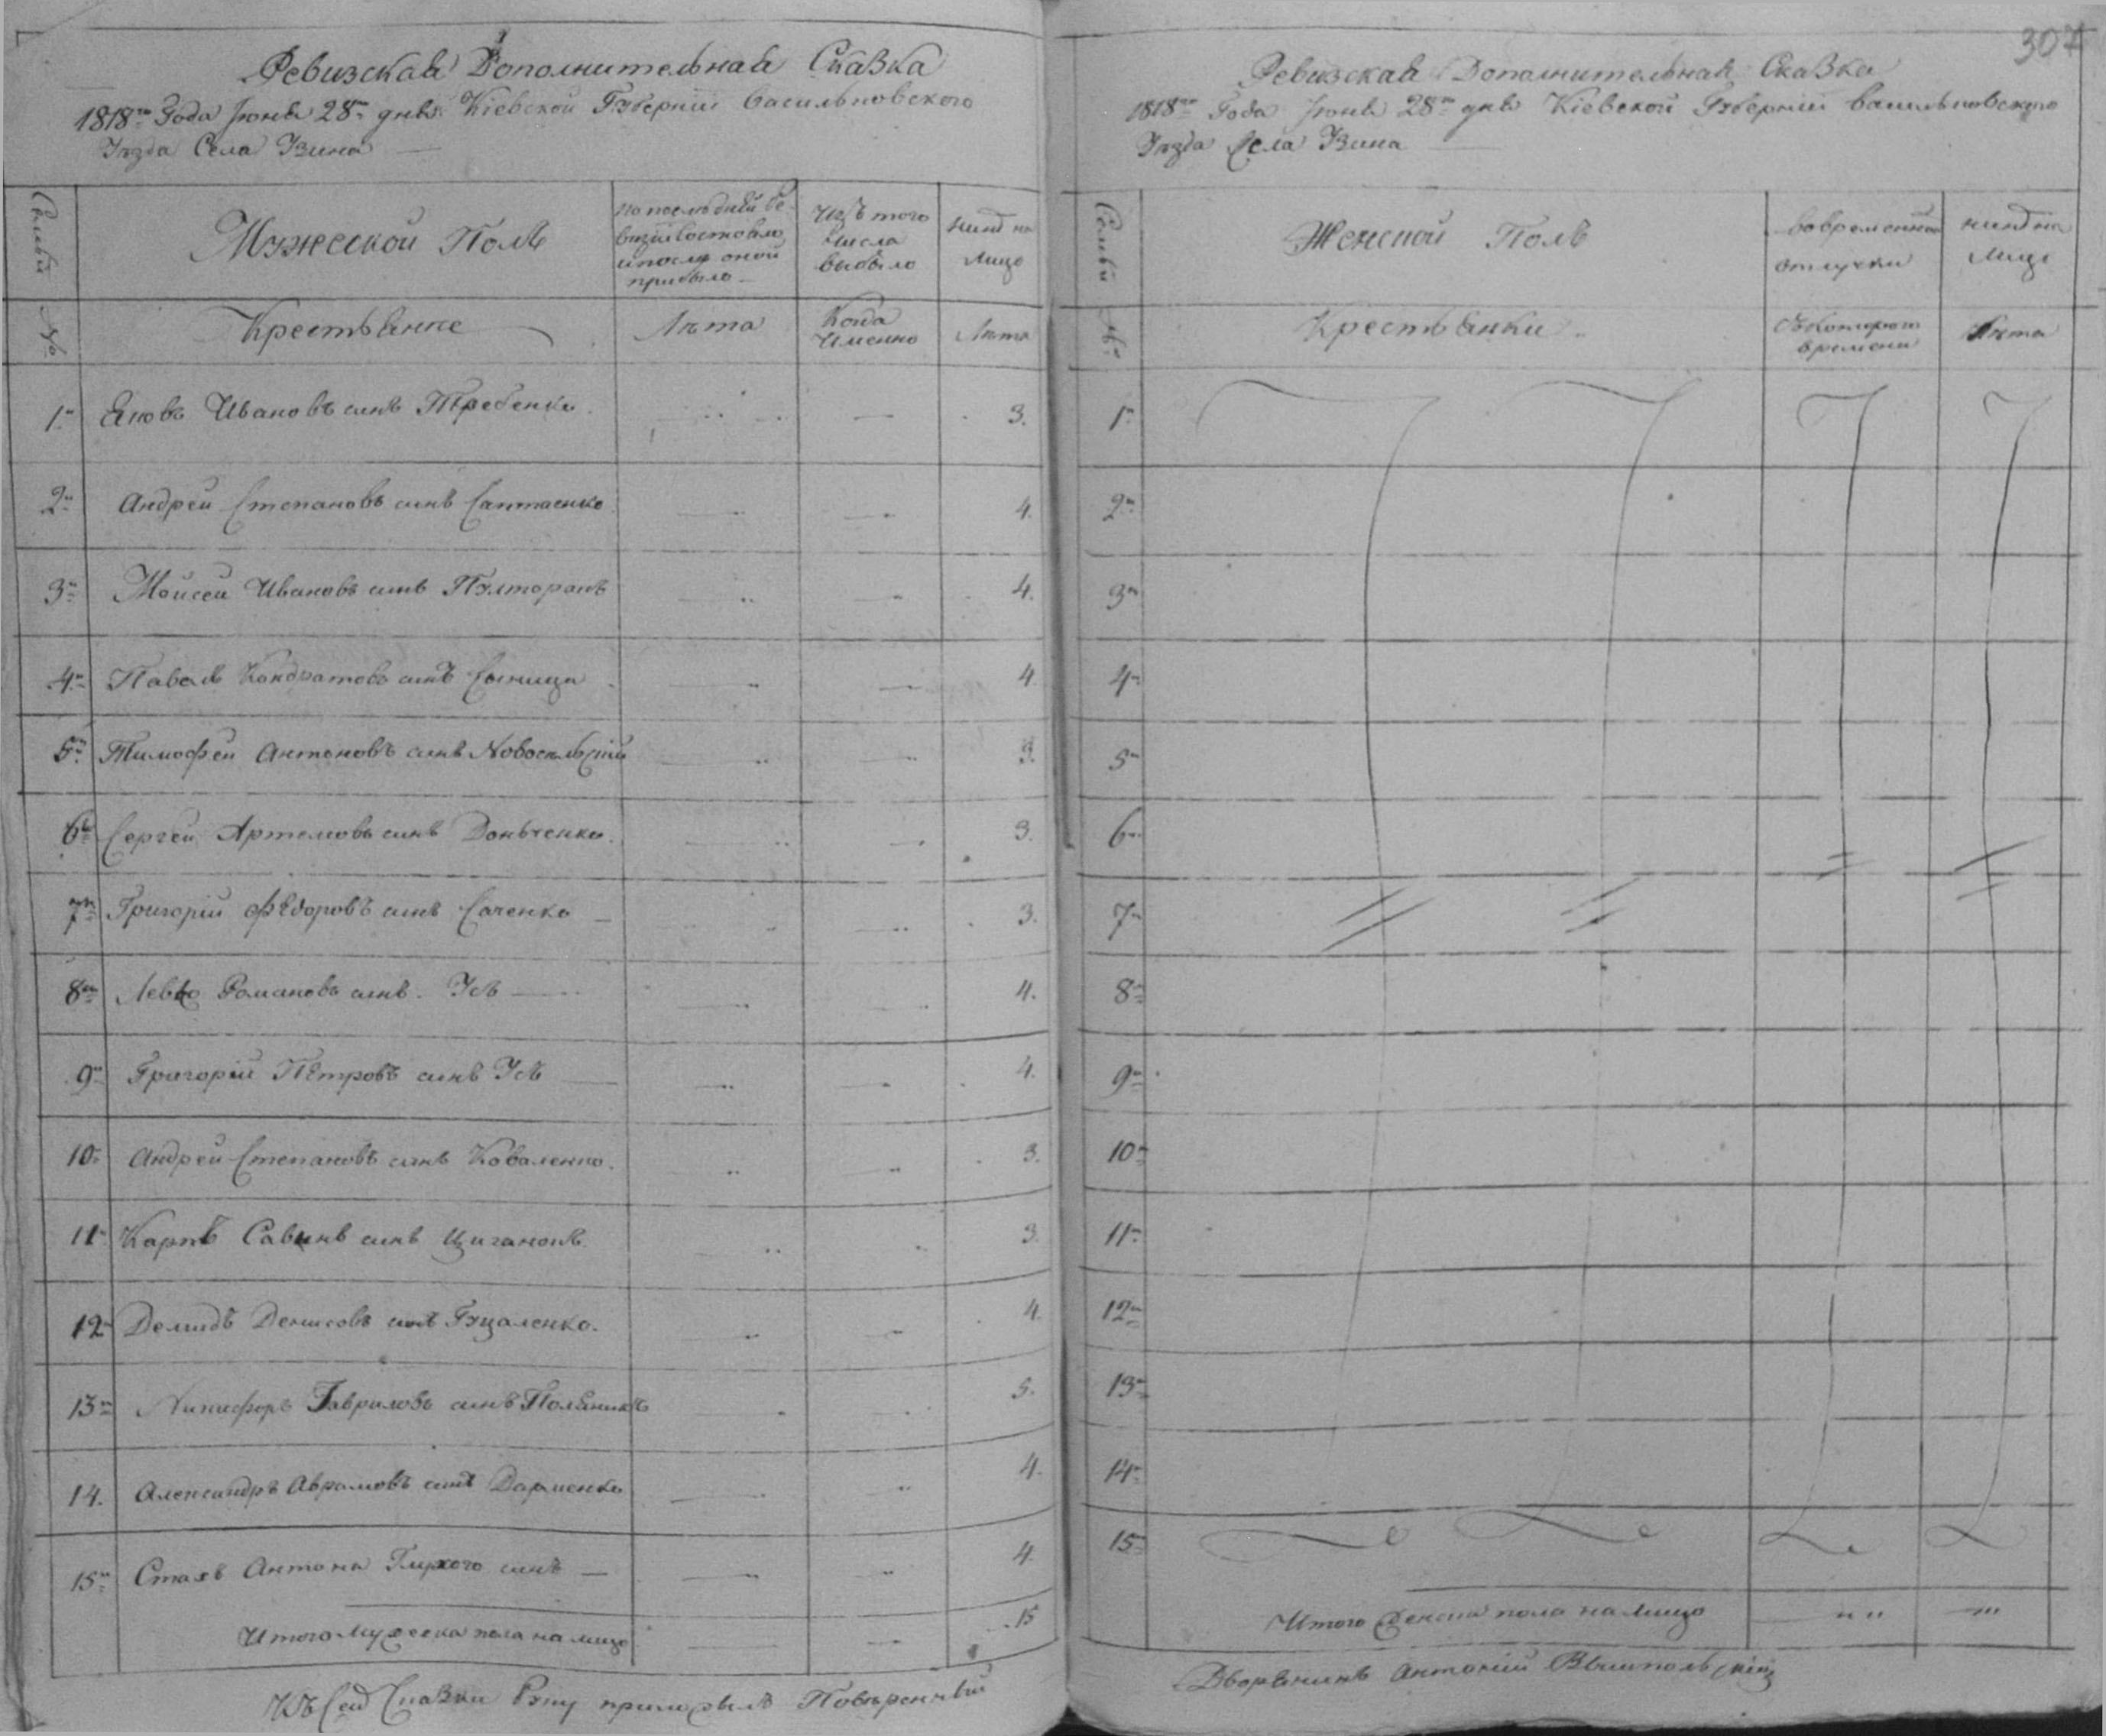 Ревизская Дополнительная Сказка
1818го Года Іюня 28го дня Кіевской Губерніи Васильковского
Уѣзда Села Узина
Семьи
Мужеской Полъ
по последней ре-
визіи состояло
и после оной
прибыло
изъ того
числа
выбыло
нинѣ на
лицо
№
Крестьяне
Лѣта
Когда
Именно
Лѣта
1 Яковъ Ивановъ синъ Гребенка 3.
2 Андрей Степановъ синъ 4.
3 Моисей Ивановъ синъ Пулторакъ 4.
4 Павелъ Кондратовъ синъ Синица 4
5 Тимофей Антоновъ синъ Новосельскій 3.
6 Сергей Артемовъ синъ Донченко 3.
7 Григорій Федоровъ синъ Саченко 3.
8 Левко Романовъ синъ Усъ 4.
9 Григорій Петровъ синъ Усъ 4.
10 Андрей Степановъ синъ Коваленко. 3.
11 Карпъ Савинъ синъ Циганокъ 3.
12 Демидъ Денисовъ синъ Гуцаленко. 4.
13 Никифоръ Гавриловъ синъ Поляникъ 5.
14. Александръ Аврамовъ синъ 4.
15 Стахъ Антона Глухого синъ 4.
Итого Мужеска пола на лицо 15
Къ сей Сказки Руку приложылъ Повѣренный
307
Ревизская Дополнительная Сказка
1818го Года Іюня 28го дня Кіевской Губерніи Васильковского
Уѣзда Села Узина
Семьи
Женской Полъ
во временной
отлучки
нинѣ на
лицо
№
Крестьянки
Съ которого
времени
Лѣта
1
2
3
4
5
6
7
8
9
10
11
12
13
14
15
Итого Женска пола на лицо
Дворянинъ Антоній